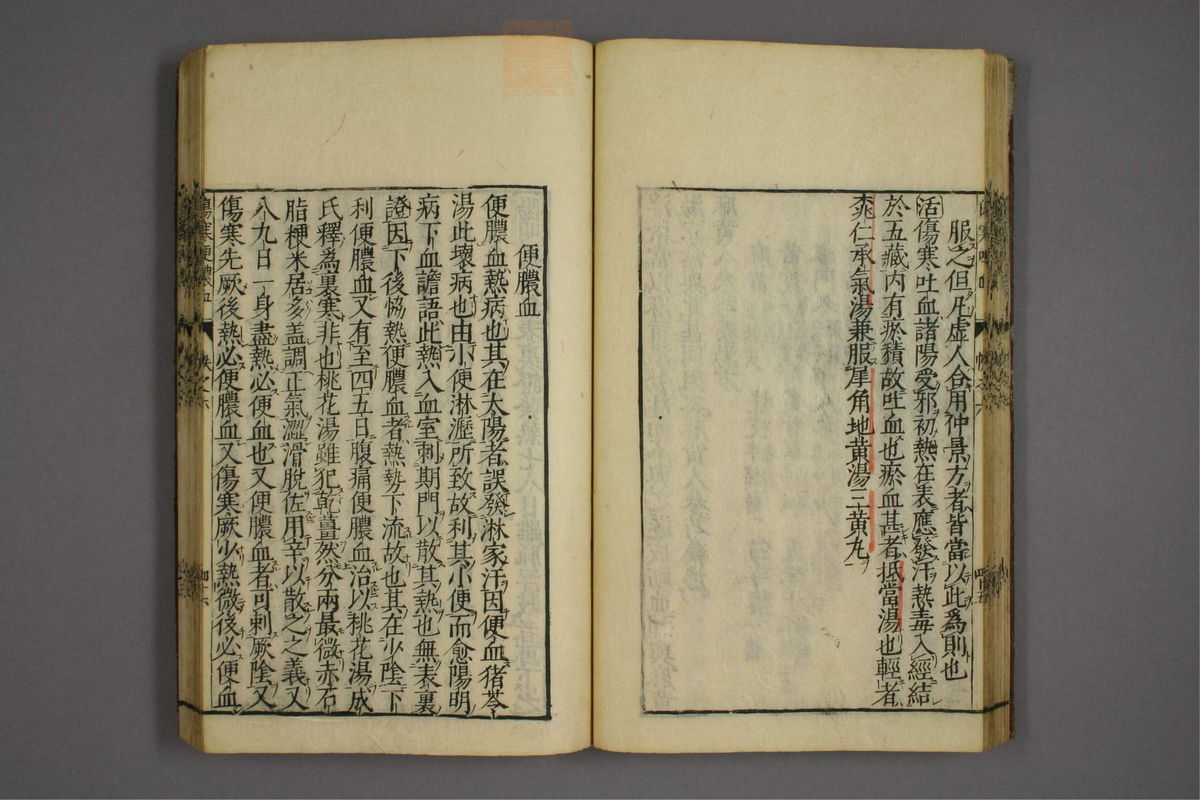 服之但凡虚人合用仲景方者皆當以此爲則也
活傷寒吐血諸陽受邪初熱在表應發汗熱毒入經結
於五藏内有瘀積故吐血也瘀血甚者抵當湯也輕者
桃仁承氣湯兼服犀角地黄湯三黄丸
便膿血
便膿血熱病也其在太陽者誤發淋家汗因便血猪苓
湯此壞病也由小便淋瀝所致故利其小便而愈陽明
病下血譫語此熱入血室刺期門以散其熱也無表裏
證因下後恊熱便膿血者熱勢下流故也其在少陰下
利便膿血又有至四五日腹痛便膿血治以桃花湯成
氏釋爲裏寒非也桃花湯雖犯乾薑然分兩最微赤石
脂粳米居多盖調正氣澀滑脫佐用辛以散之之義又
八九日一身盡熱必便血也又便膿血者可刺厥陰又
傷寒先厥後熱必便膿血又傷寒厥少熱微後必便血